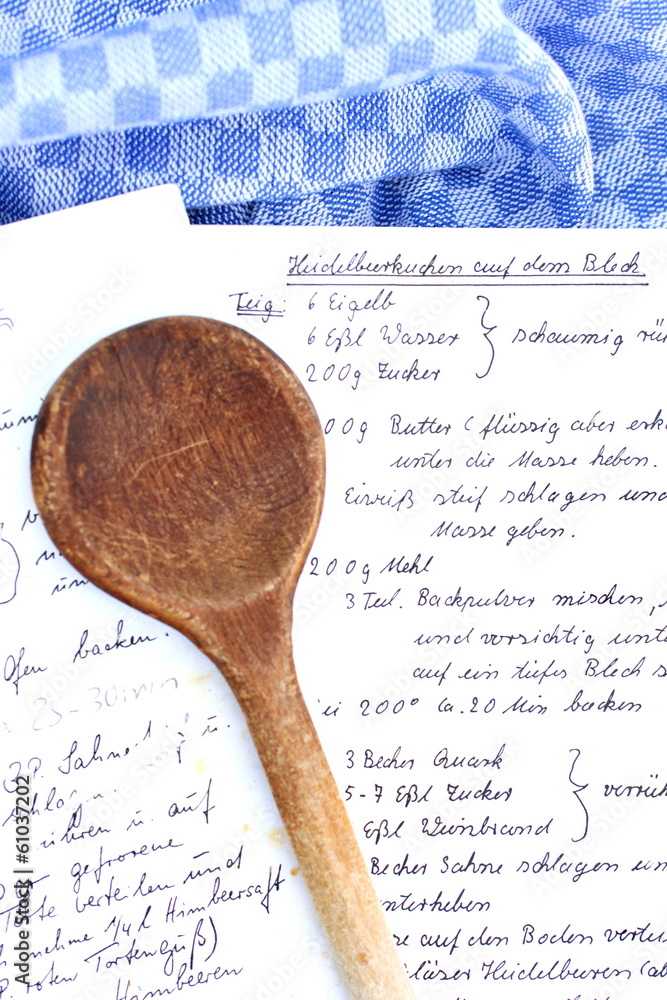 Heidelbeerkuchen auf dem Blech
Teig: 6 Eigelb
6 Eßl Wasser } schaumig
200g Zucker
00g Butter (flüssig aber
unter die Masse heben.
Eiweiß steif schlagen und
Masse geben.
200g Mehl
3 Teel. Backpulver mischen,
und vorsichtig
auf ein tiefes Blech
200° ca. 20 Min backen
3 Becher Quark
5-7 Eßl Zucker
Eßl Weinbrand
Becher Sahne schlagen
unterheben
auf den Boden
Gläser Heidelbeeren
Ofen backen.
25-30 min
P. Sahne
u. auf
gefrorene
Torte verteilen und
1/4 l Himbeersaft
P. roten Tortenguß)
Himbeeren
Adobe Stock | #61037202